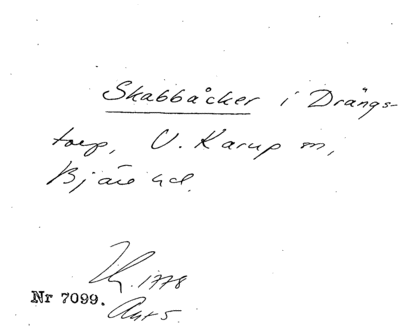 Skabbåcker i Drängs-
torp, V. Karup sn,
Bjäre hd.
1778
Nr 7099. Akt 5.